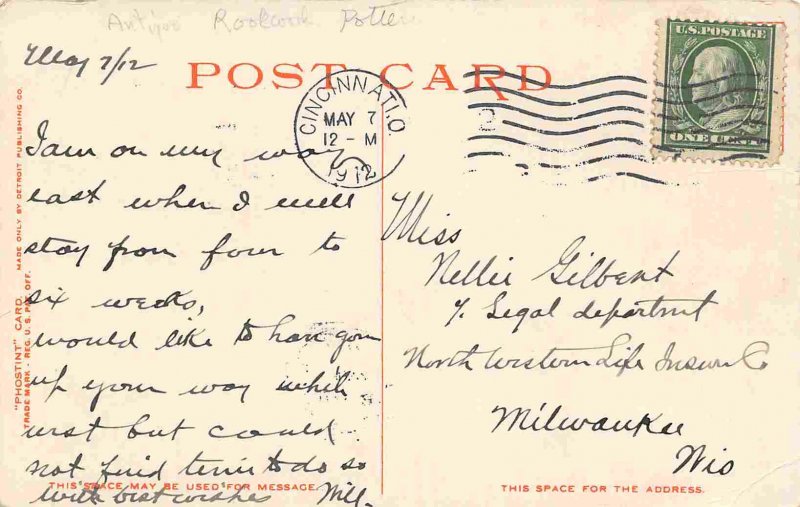 Rookwood Potter
May 7/12
POST CARD
CINCINNATI, O.
MAY 7
12 - M
1912
2
U.S. POSTAGE
ONE CENT
"PHOSTINT" CARD. MADE ONLY BY DETROIT PUBLISHING CO.
TRADE MARK - REG. U.S. PAT. OFF.
I am on my way
east when I will
stay from four to
six weeks,
would like to
up your way while
west but could
not find time to do so
with best wishes Will.
THIS SPACE MAY BE USED FOR MESSAGE.
Miss
Nellie Gilbert
% Legal department
North Western Life Insur Co
Milwaukee
Wis
THIS SPACE FOR THE ADDRESS.